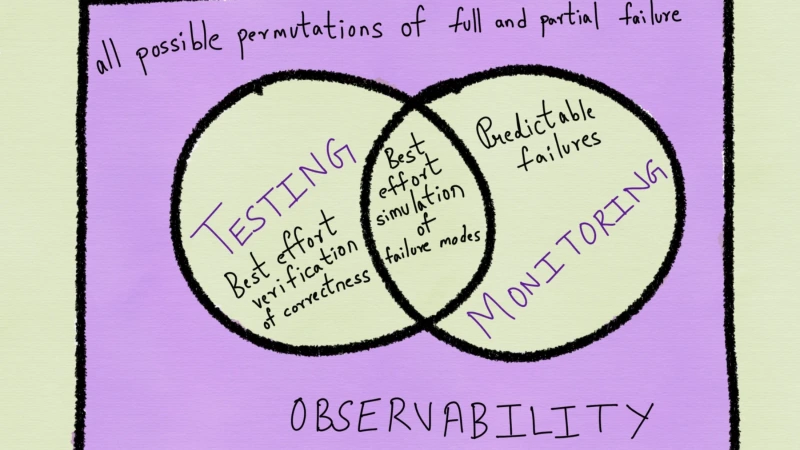 all possible permutations of full and partial failure
TESTING
Best effort
verification
of correctness
Best
effort
simulation
of
failure modes
Predictable
failures
MONITORING
OBSERVABILITY